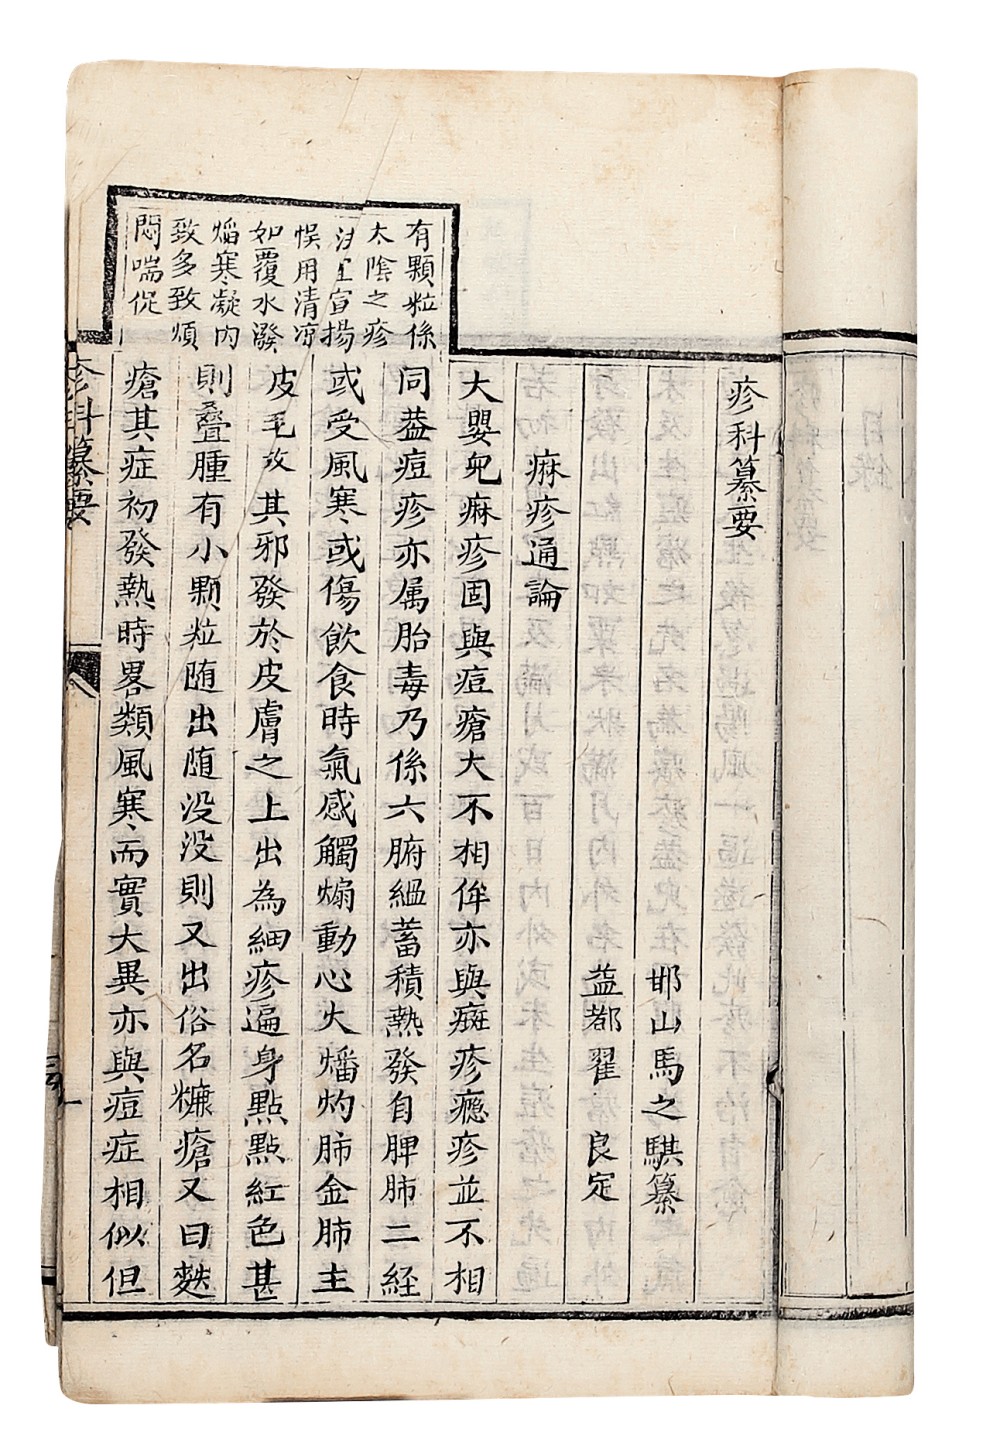 疹科纂要
邯山馬之騏纂
益都翟良定
痳疹通論
大嬰兒痳疹固與痘瘡大不相侔亦與斑疹癮疹並不相
同葢痘疹亦属胎毒乃係六腑緼蓄積熱發自脾肺二経
或受風寒或傷飲食時氣感觸煽動心火燔灼肺金肺主
皮毛故其邪發於皮膚之上出為細疹遍身點點紅色甚
則疊腫有小顆粒随出随没没則又出俗名糠瘡又曰麩
瘡其症初發熱時畧類風寒而實大異亦與痘症相似但
有顆粒係
太陰之疹
宜宣揚
悮用清凉
如覆水潑
焰寒凝内
致多致煩
悶喘促
疹科纂要
一
目錄